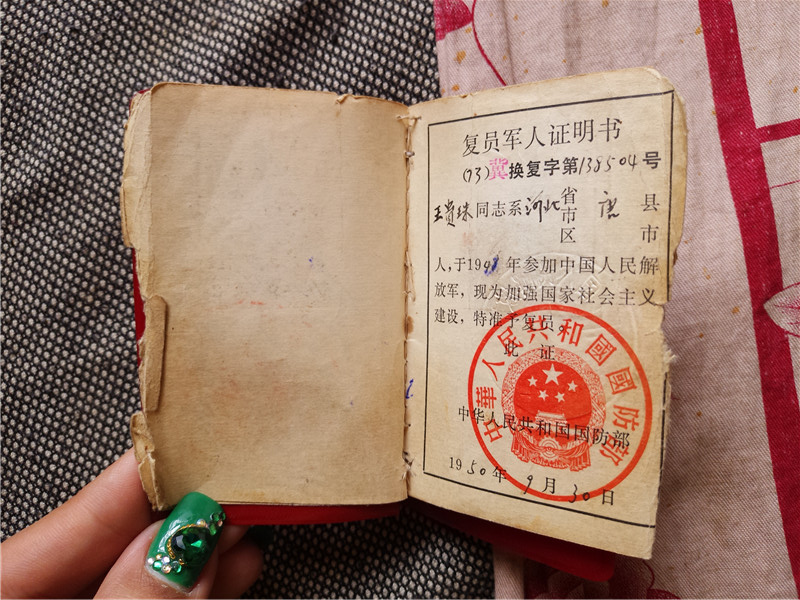 复员军人证明书
(73)冀换复字第138504号
王贵珠同志系河北省市区唐县市
人,于1948年参加中国人民解
放军,现为加强国家社会主义
建设,特准予复员。
此证
中华人民共和国国防部
中華人民共和國國防部
1950年9月30日